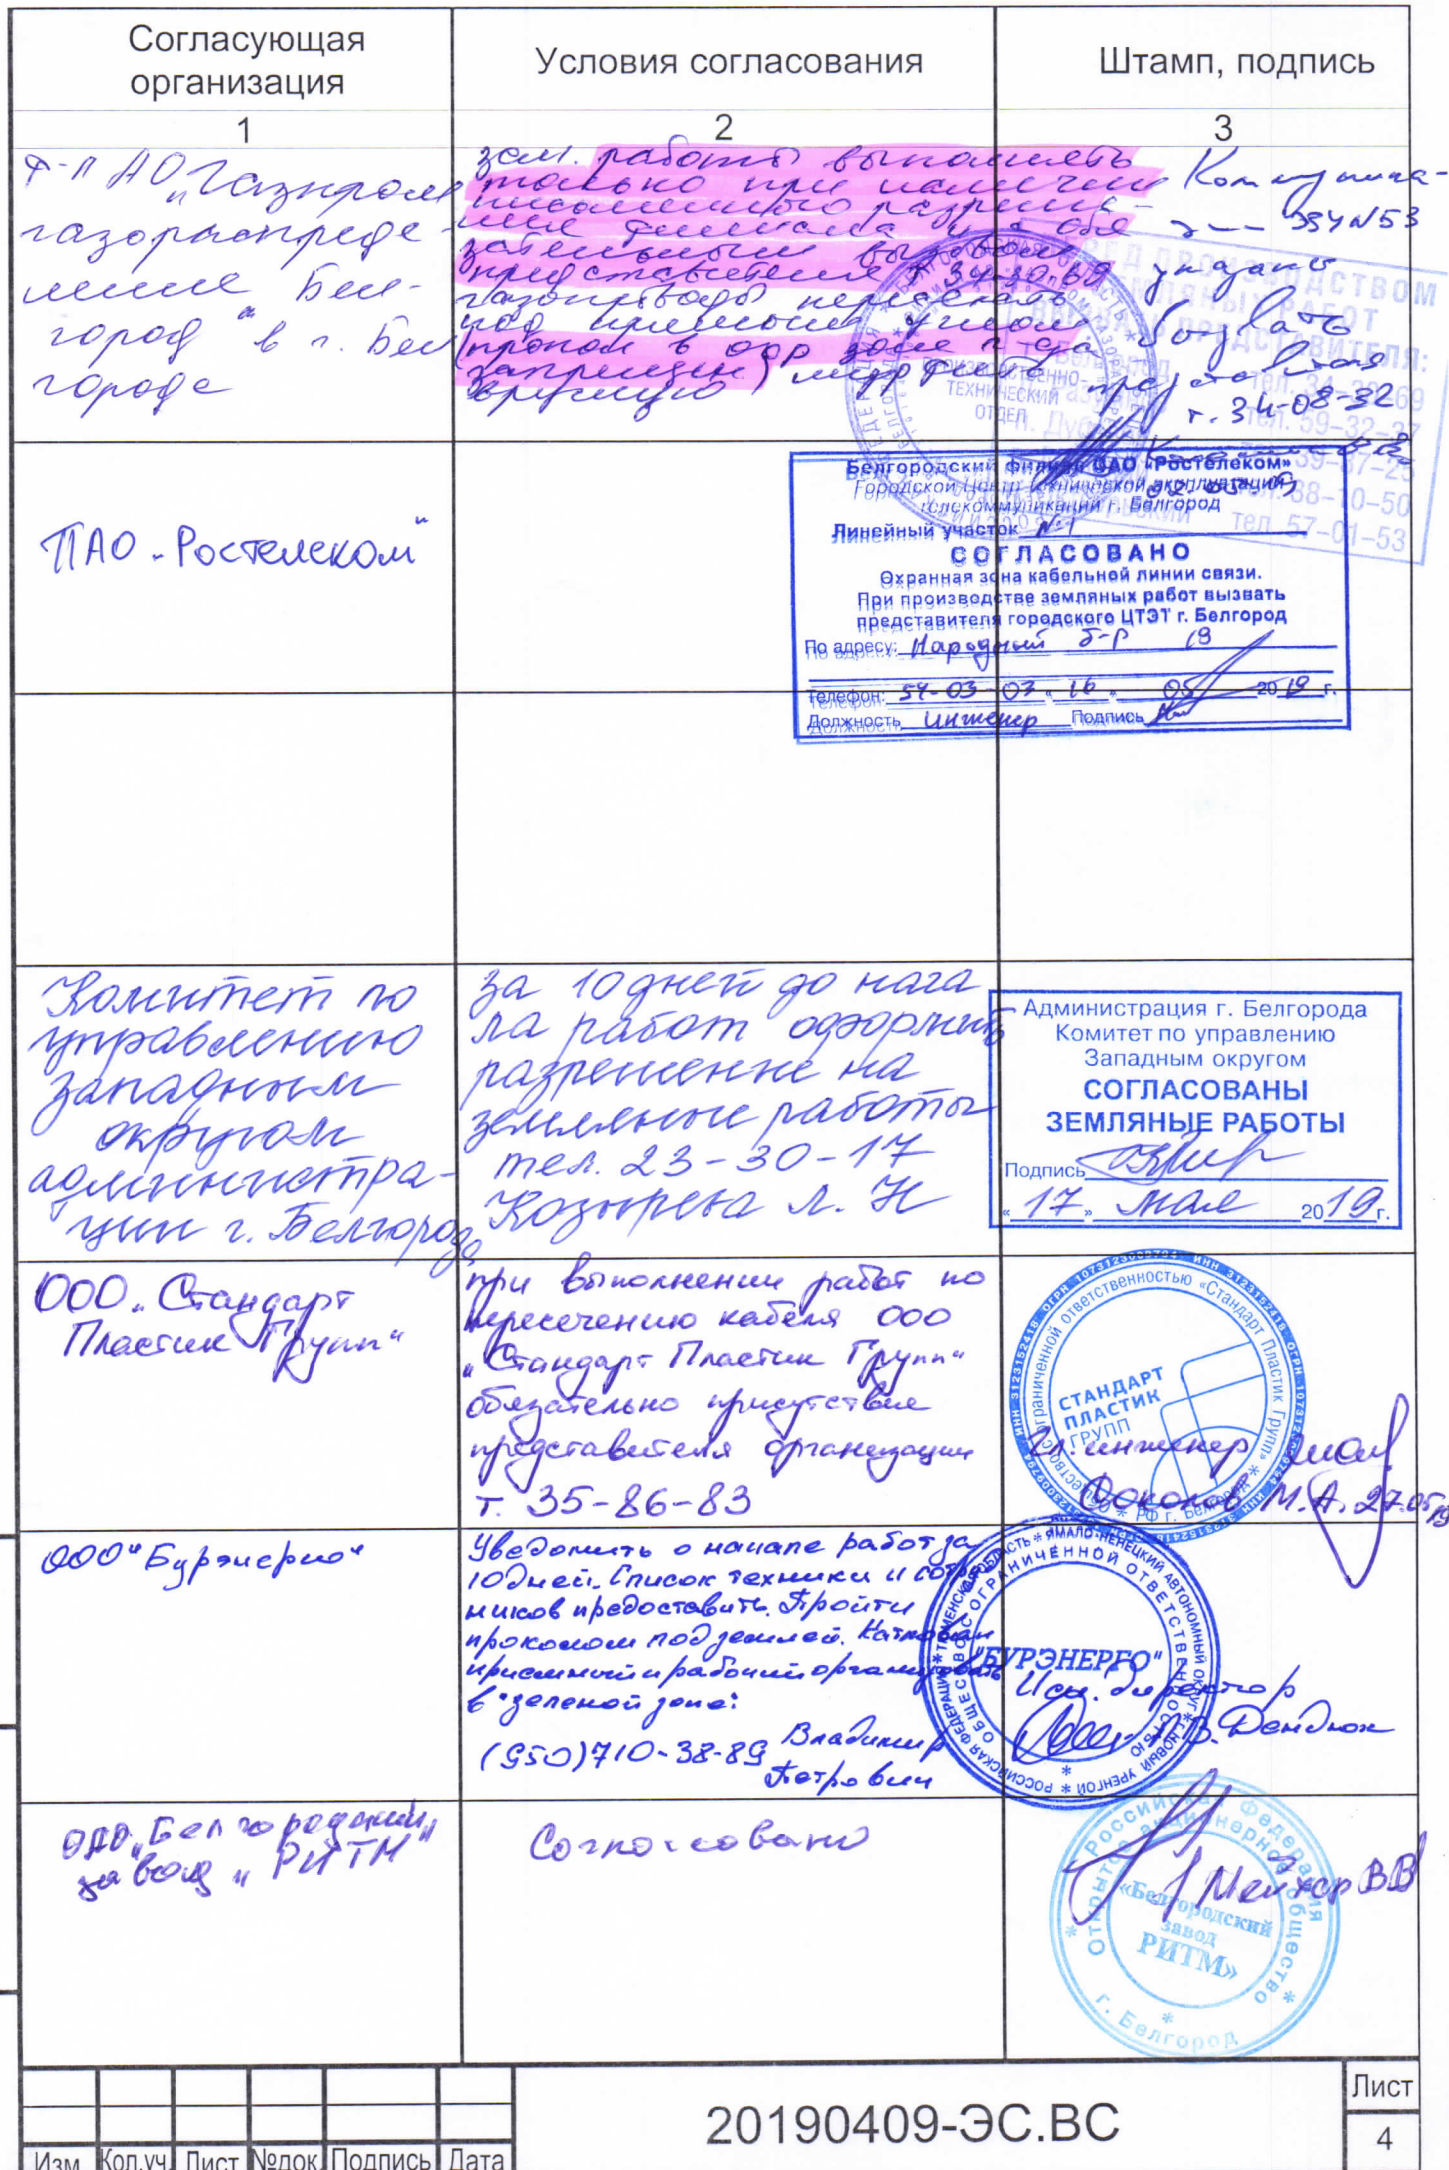 Согласующая
организация
Условия согласования
Штамп, подпись
1
2
3
ф-л АО „Газпром
газораспреде-
ление Бел-
город" в г. Бел
городе
зем. работы выполнять
только при наличии
письменного разреше-
ния филиала и с обя
зательным вызовом
представителя т. 34-30-69
газопроводы пересекать
под прямым углом
(прокол в охр зоне г-да
запрещен)
вручную
Коммуника-
ЭЗУ N53
указаны
вызвать
представителя
т. 34-08-32
02.05.19
ПРОИЗВОДСТВЕННО-
ТЕХНИЧЕСКИЙ
ОТДЕЛ
ПЕРЕД ПРОИЗВОДСТВОМ
ЗЕМЛЯНЫХ РАБОТ
ВЫЗВАТЬ ПРЕДСТАВИТЕЛЯ:
тел. 59-32-37
тел. 57-01-53
ПАО „Ростелеком"
Белгородский филиал ОАО «Ростелеком»
Городской Центр технической эксплуатации
телекоммуникаций г. Белгород
Линейный участок №1
СОГЛАСОВАНО
Охранная зона кабельной линии связи.
При производстве земляных работ вызвать
представителя городского ЦТЭТ г. Белгород
По адресу: Народный б-р 19
Телефон: 54-03-03 «16» 05 2019 г.
Должность инженер Подпись
Комитет по
управлению
западным
округом
администра-
ции г. Белгорода
за 10 дней до нача
ла работ оформить
разрешение на
земляные работы
тел. 23-30-17
Козырева Л. Н
Администрация г. Белгорода
Комитет по управлению
Западным округом
СОГЛАСОВАНЫ
ЗЕМЛЯНЫЕ РАБОТЫ
Подпись
«17» мая 2019г.
ООО „Стандарт
Пластик Групп"
при выполнении работ по
пересечению кабеля ООО
„Стандарт Пластик Групп"
обязательно присутствие
представителя организации
т. 35-86-83
ограниченной ответственностью «Стандарт Пластик Групп»
* РФ г. Белгород *
ИНН 3123152418 ОГРН 1073123009794
СТАНДАРТ
ПЛАСТИК
ГРУПП
Гл. инженер
М.А. 27.05.19
ООО "Бурэнерго"
Уведомить о начале работ за
10 дней. Список техники и сотруд
ников предоставить. Пройти
проколом под землей. Котлован
приемный и рабочий организовать
в "зеленой зоне:
(950)710-38-89 Владимир
Петрович
РОССИЙСКАЯ ФЕДЕРАЦИЯ * ТЮМЕНСКАЯ ОБЛАСТЬ * ЯМАЛО-НЕНЕЦКИЙ АВТОНОМНЫЙ ОКРУГ * Г.НОВЫЙ УРЕНГОЙ *
ОБЩЕСТВО С ОГРАНИЧЕННОЙ ОТВЕТСТВЕННОСТЬЮ
"БУРЭНЕРГО"
Исп. директор
В. Дендюк
ОАО „Белгородский
завод „РИТМ"
Согласовано
Российская Федерация
Открытое акционерное общество
«Белгородский
завод
РИТМ»
г. Белгород
Мейхер ВВ
20190409-ЭС.ВС
Лист
4
Изм. Кол.уч. Лист №док. Подпись Дата